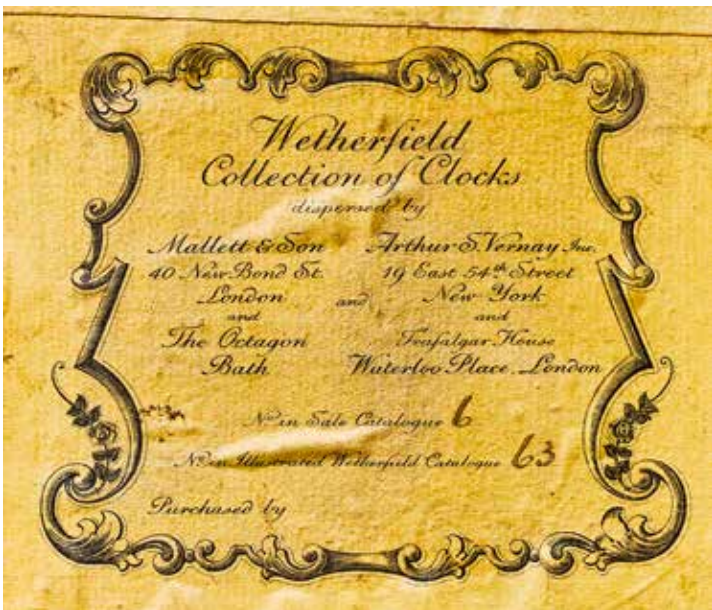 Wetherfield
Collection of Clocks
dispersed by
Mallett & Son
40 New Bond St.
London
and
The Octagon
Bath
and
Arthur S. Vernay Inc.
19 East 54th Street
New York
and
Trafalgar House
Waterloo Place. London
No in Sale Catalogue 6
No in Illustrated Wetherfield Catalogue 63
Purchased by